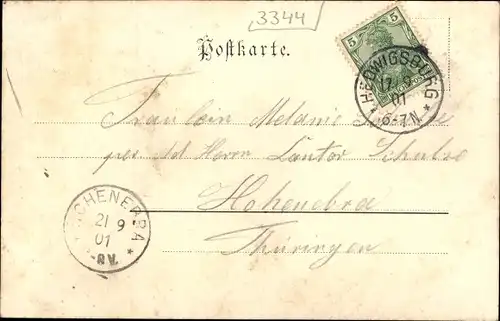 3344
Postkarte.
5
5
HEDWIGSBURG
17 9
01
6-7N.
Fräulein Melanie
per Ad Herrn Cantor Schulze
Hohenebra
Thüringen
HOHENEBRA
21 9
01
-8V.